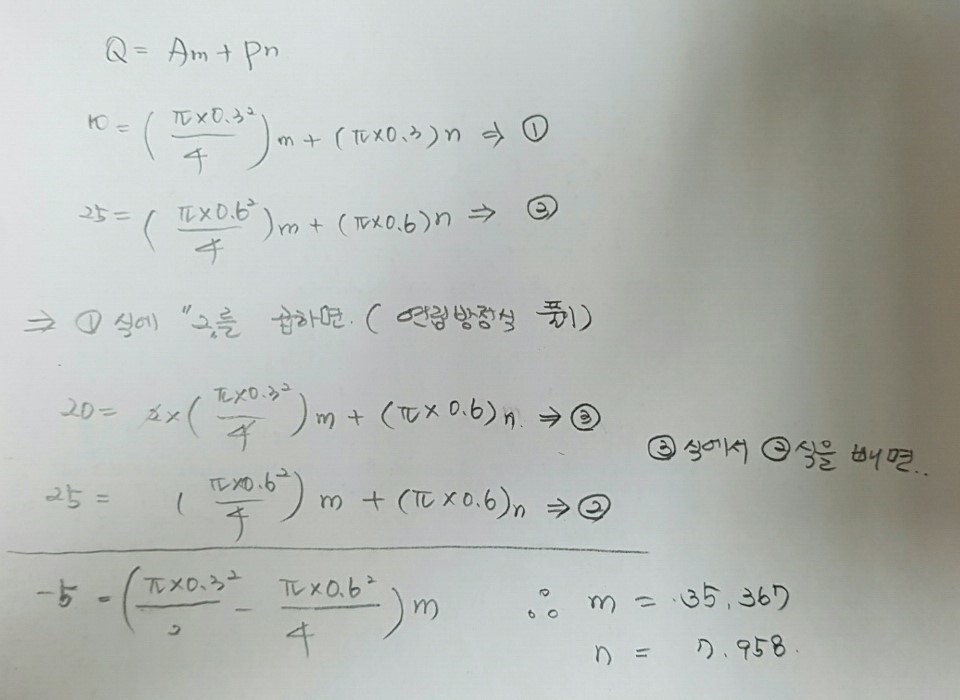 Q = Am + Pn
10 = ( π×0.3² / 4 ) m + (π×0.3) n ⇒ ①
25 = ( π×0.6² / 4 ) m + (π×0.6) n ⇒ ②
⇒ ① 식에 "2"를 곱하면. ( 연립방정식 풀이)
20 = 2×( π×0.3² / 4 ) m + (π×0.6) n. ⇒ ③
③ 식에서 ② 식을 빼면..
25 = ( π×0.6² / 4 ) m + (π×0.6) n ⇒ ②
-5 = ( π×0.3² / 2 - π×0.6² / 4 ) m ∴ m = 35.367
n = 7.958.